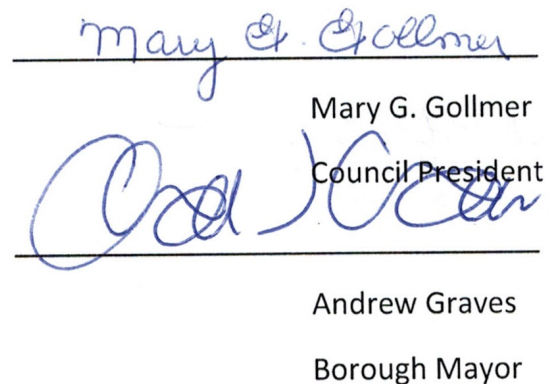 Mary G. Gollmer
Mary G. Gollmer
Council President
Andrew Graves
Borough Mayor